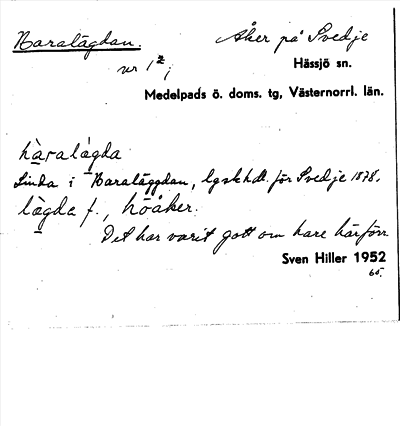 Haralägdan.
Åker på Svedje
nr 1²;
Hässjö sn.
Medelpads ö. doms. tg, Västernorrl. län.
hàralàgda
Linda i Haraläggdan, lgskhdl. för Svedje 1878.
lägda f., höåker.
Det har varit gott om hare härförr.
Sven Hiller 1952
65.